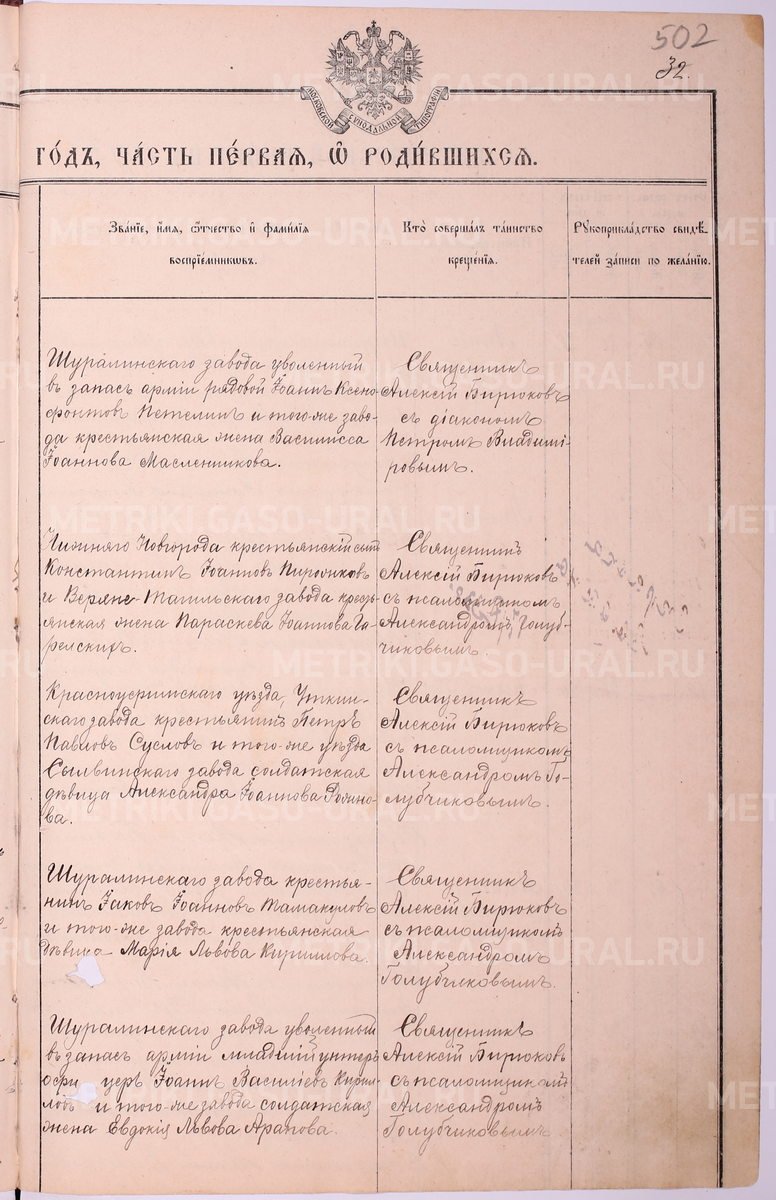 502
32.
МОСКОВСКОЙ СѴНОДАЛЬНОЙ ТИПОГРАФІИ
ГОДЪ, ЧАСТЬ ПЕРВАЯ, Ѽ РОДИВШИХСЯ.
Званіе, имя, ѻтчество и фамилія
воспріемниковъ.
Кто совершалъ таинство
крещенія.
Рукоприкладство свидѣ-
телей записи по желанію.
Шуралинскаго завода уволенный
въ запасъ арміи рядовой Іоаннъ Ксено-
фонтовъ Петелинъ и того-же заво-
да крестьянская жена Василисса
Іоаннова Масленникова.
Священникъ
Алексій Бирюковъ
съ діакономъ
Петромъ Владимі-
ровымъ.
Нижняго Новгорода крестьянскій сынъ
Константинъ Іоанновъ Пирожковъ
и Верхне-Тагильскаго завода кресть-
янская жена Параскева Іоаннова Га-
рельскихъ.
Священникъ
Алексій Бирюковъ
съ псаломщикомъ
Александромъ Голуб-
чиковымъ.
Красноуфимскаго уѣзда, Уткин-
скаго завода крестьянинъ Петръ
Павловъ Сусловъ и того-же уѣзда
Сылвинскаго завода солдатская
дѣвица Александра Іоаннова
ва.
Священникъ
Алексій Бирюковъ
съ псаломщикомъ
Александромъ Го-
лубчиковымъ.
Шуралинскаго завода крестья-
нинъ Іаковъ Іоанновъ Тамакуловъ
и того-же завода крестьянская
дѣвица Марія Львова Кириллова.
Священникъ
Алексій Бирюковъ
съ псаломщикомъ
Александромъ
Голубчиковымъ.
Шуралинскаго завода уволенный
въ запасъ арміи младшій унтеръ
офи церъ Іоаннъ Василіевъ Кирил-
ловъ и того-же завода солдатская
жена Евдокія Львова Арапова.
Священникъ
Алексій Бирюковъ
съ псаломщикомъ
Александромъ
Голубчиковымъ.
METRIKI.GASO-URAL.RU